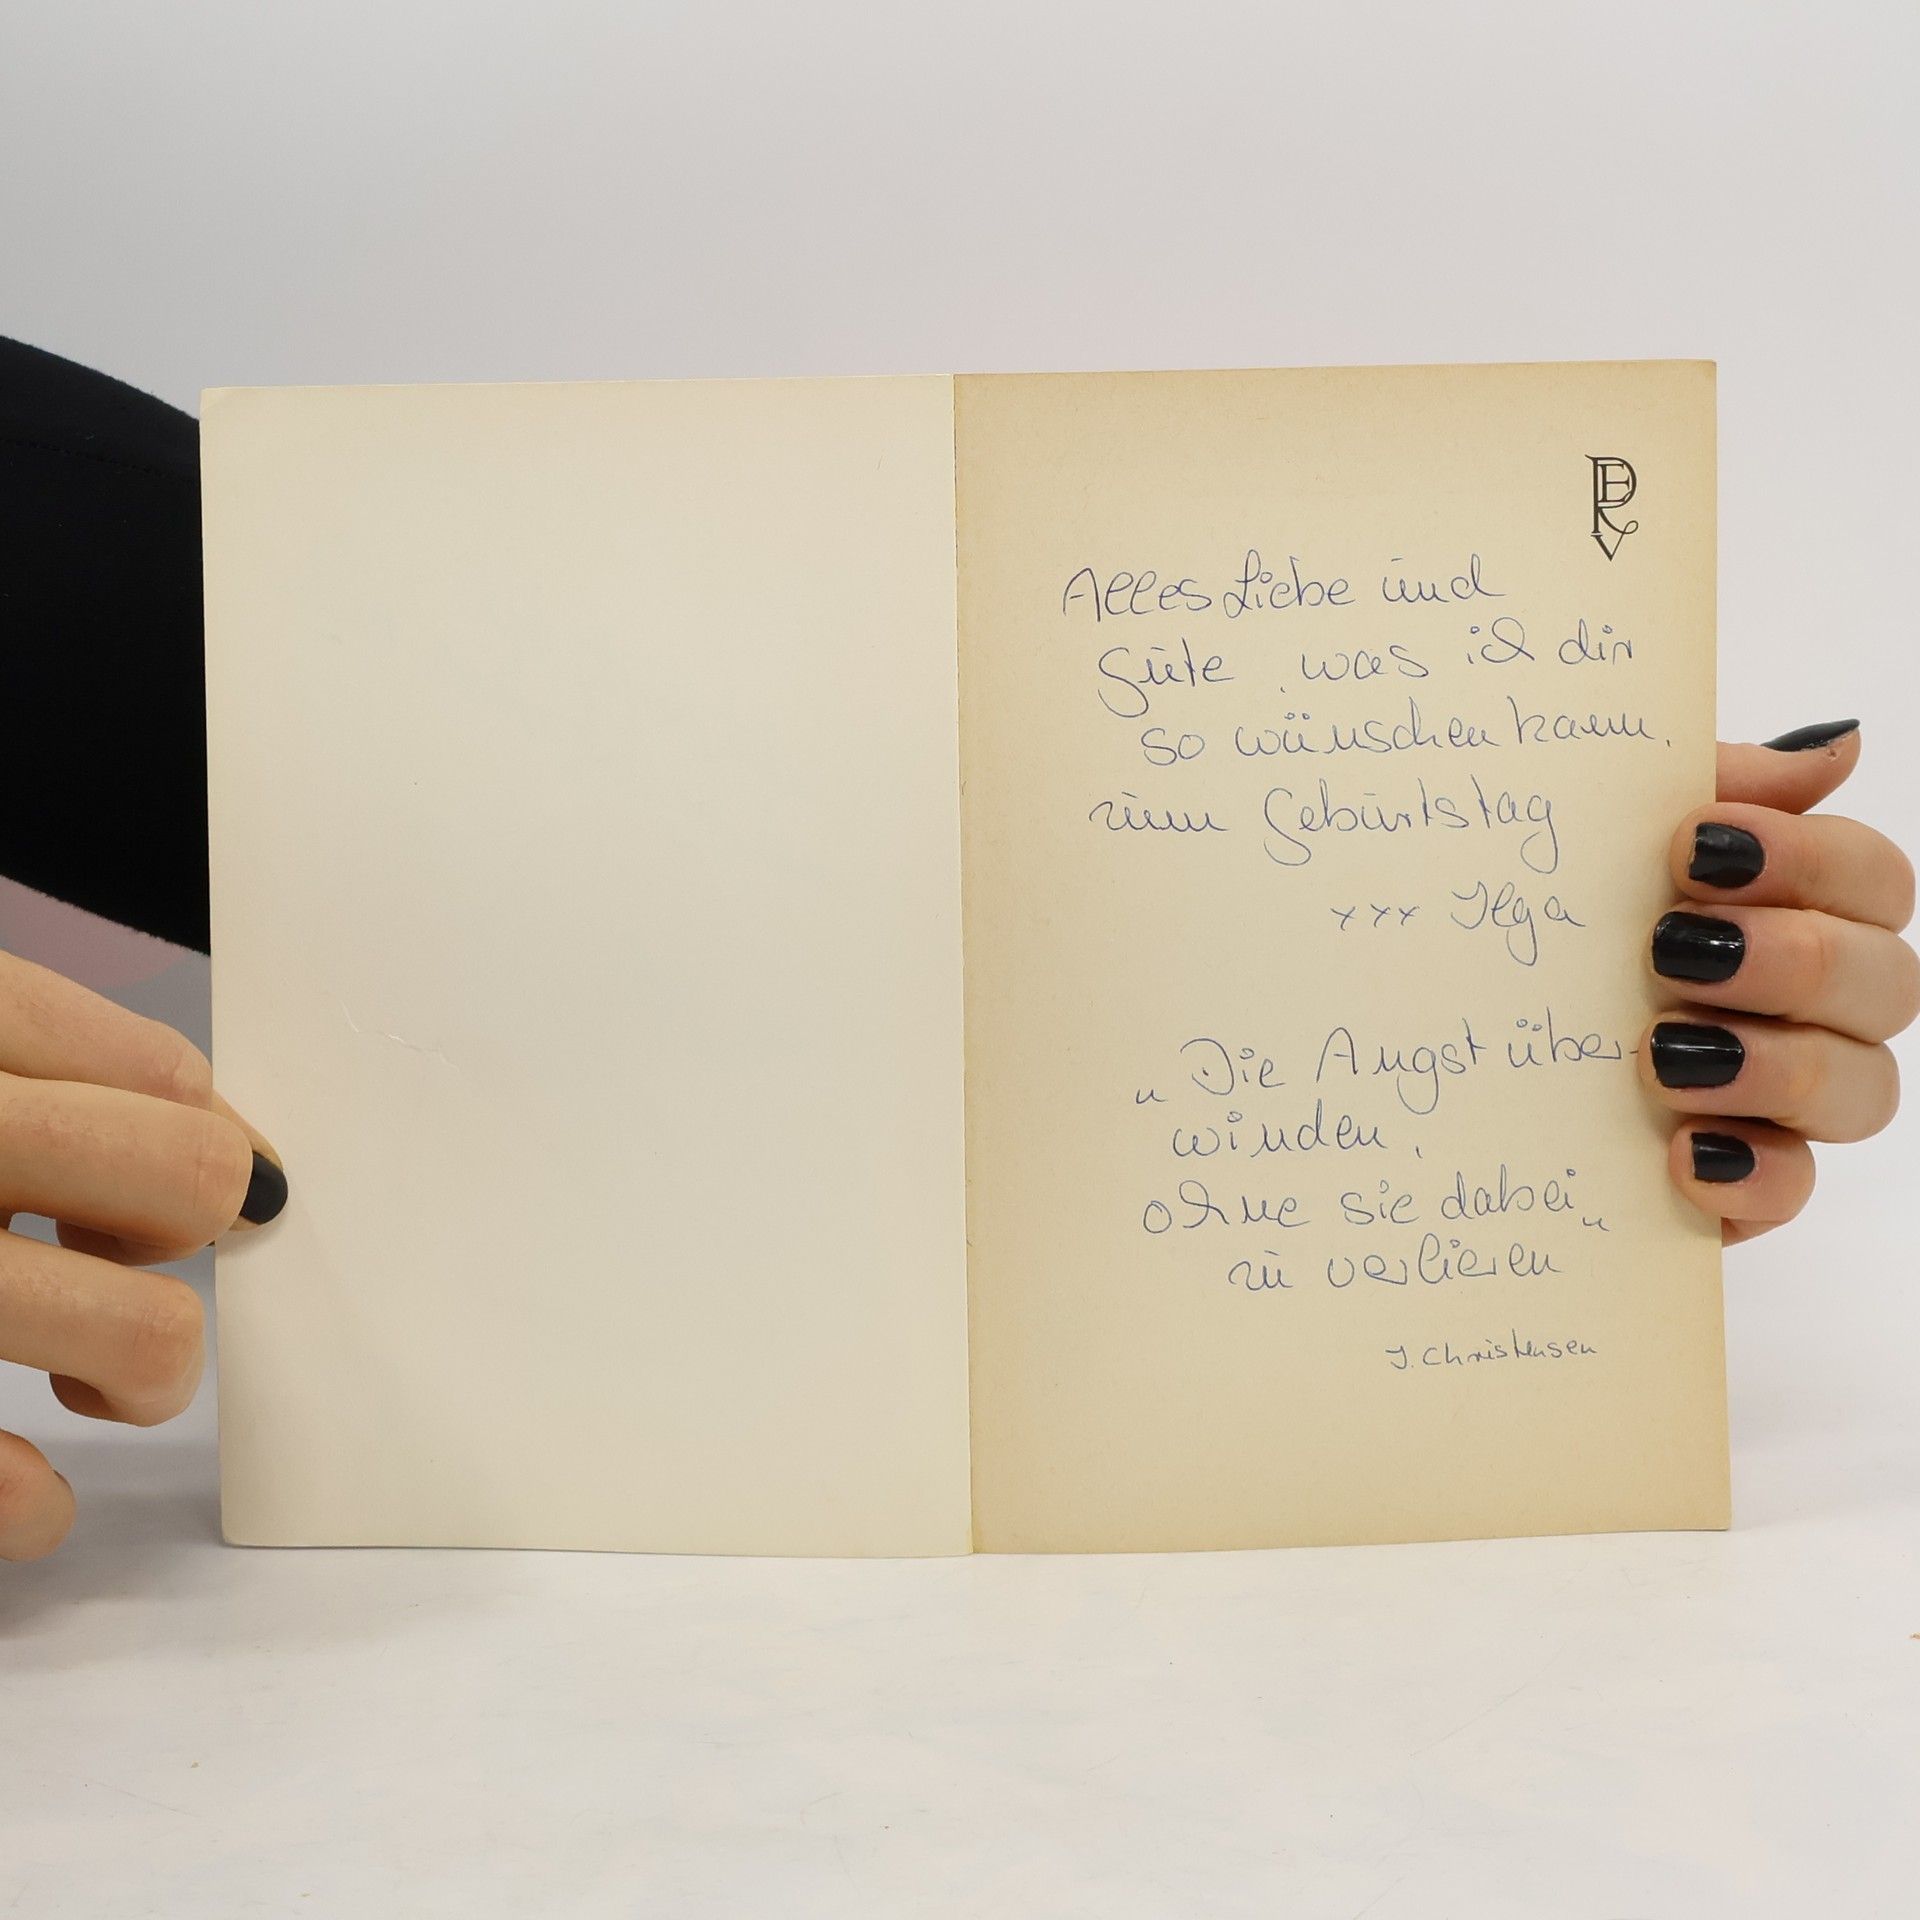 PERV
Alles Liebe und
Gute, was ich dir
so wünschen kann,
zum Geburtstag
xxx Ilga
„Die Angst über-
winden,
ohne sie dabei"
zu verlieren
I. Christensen